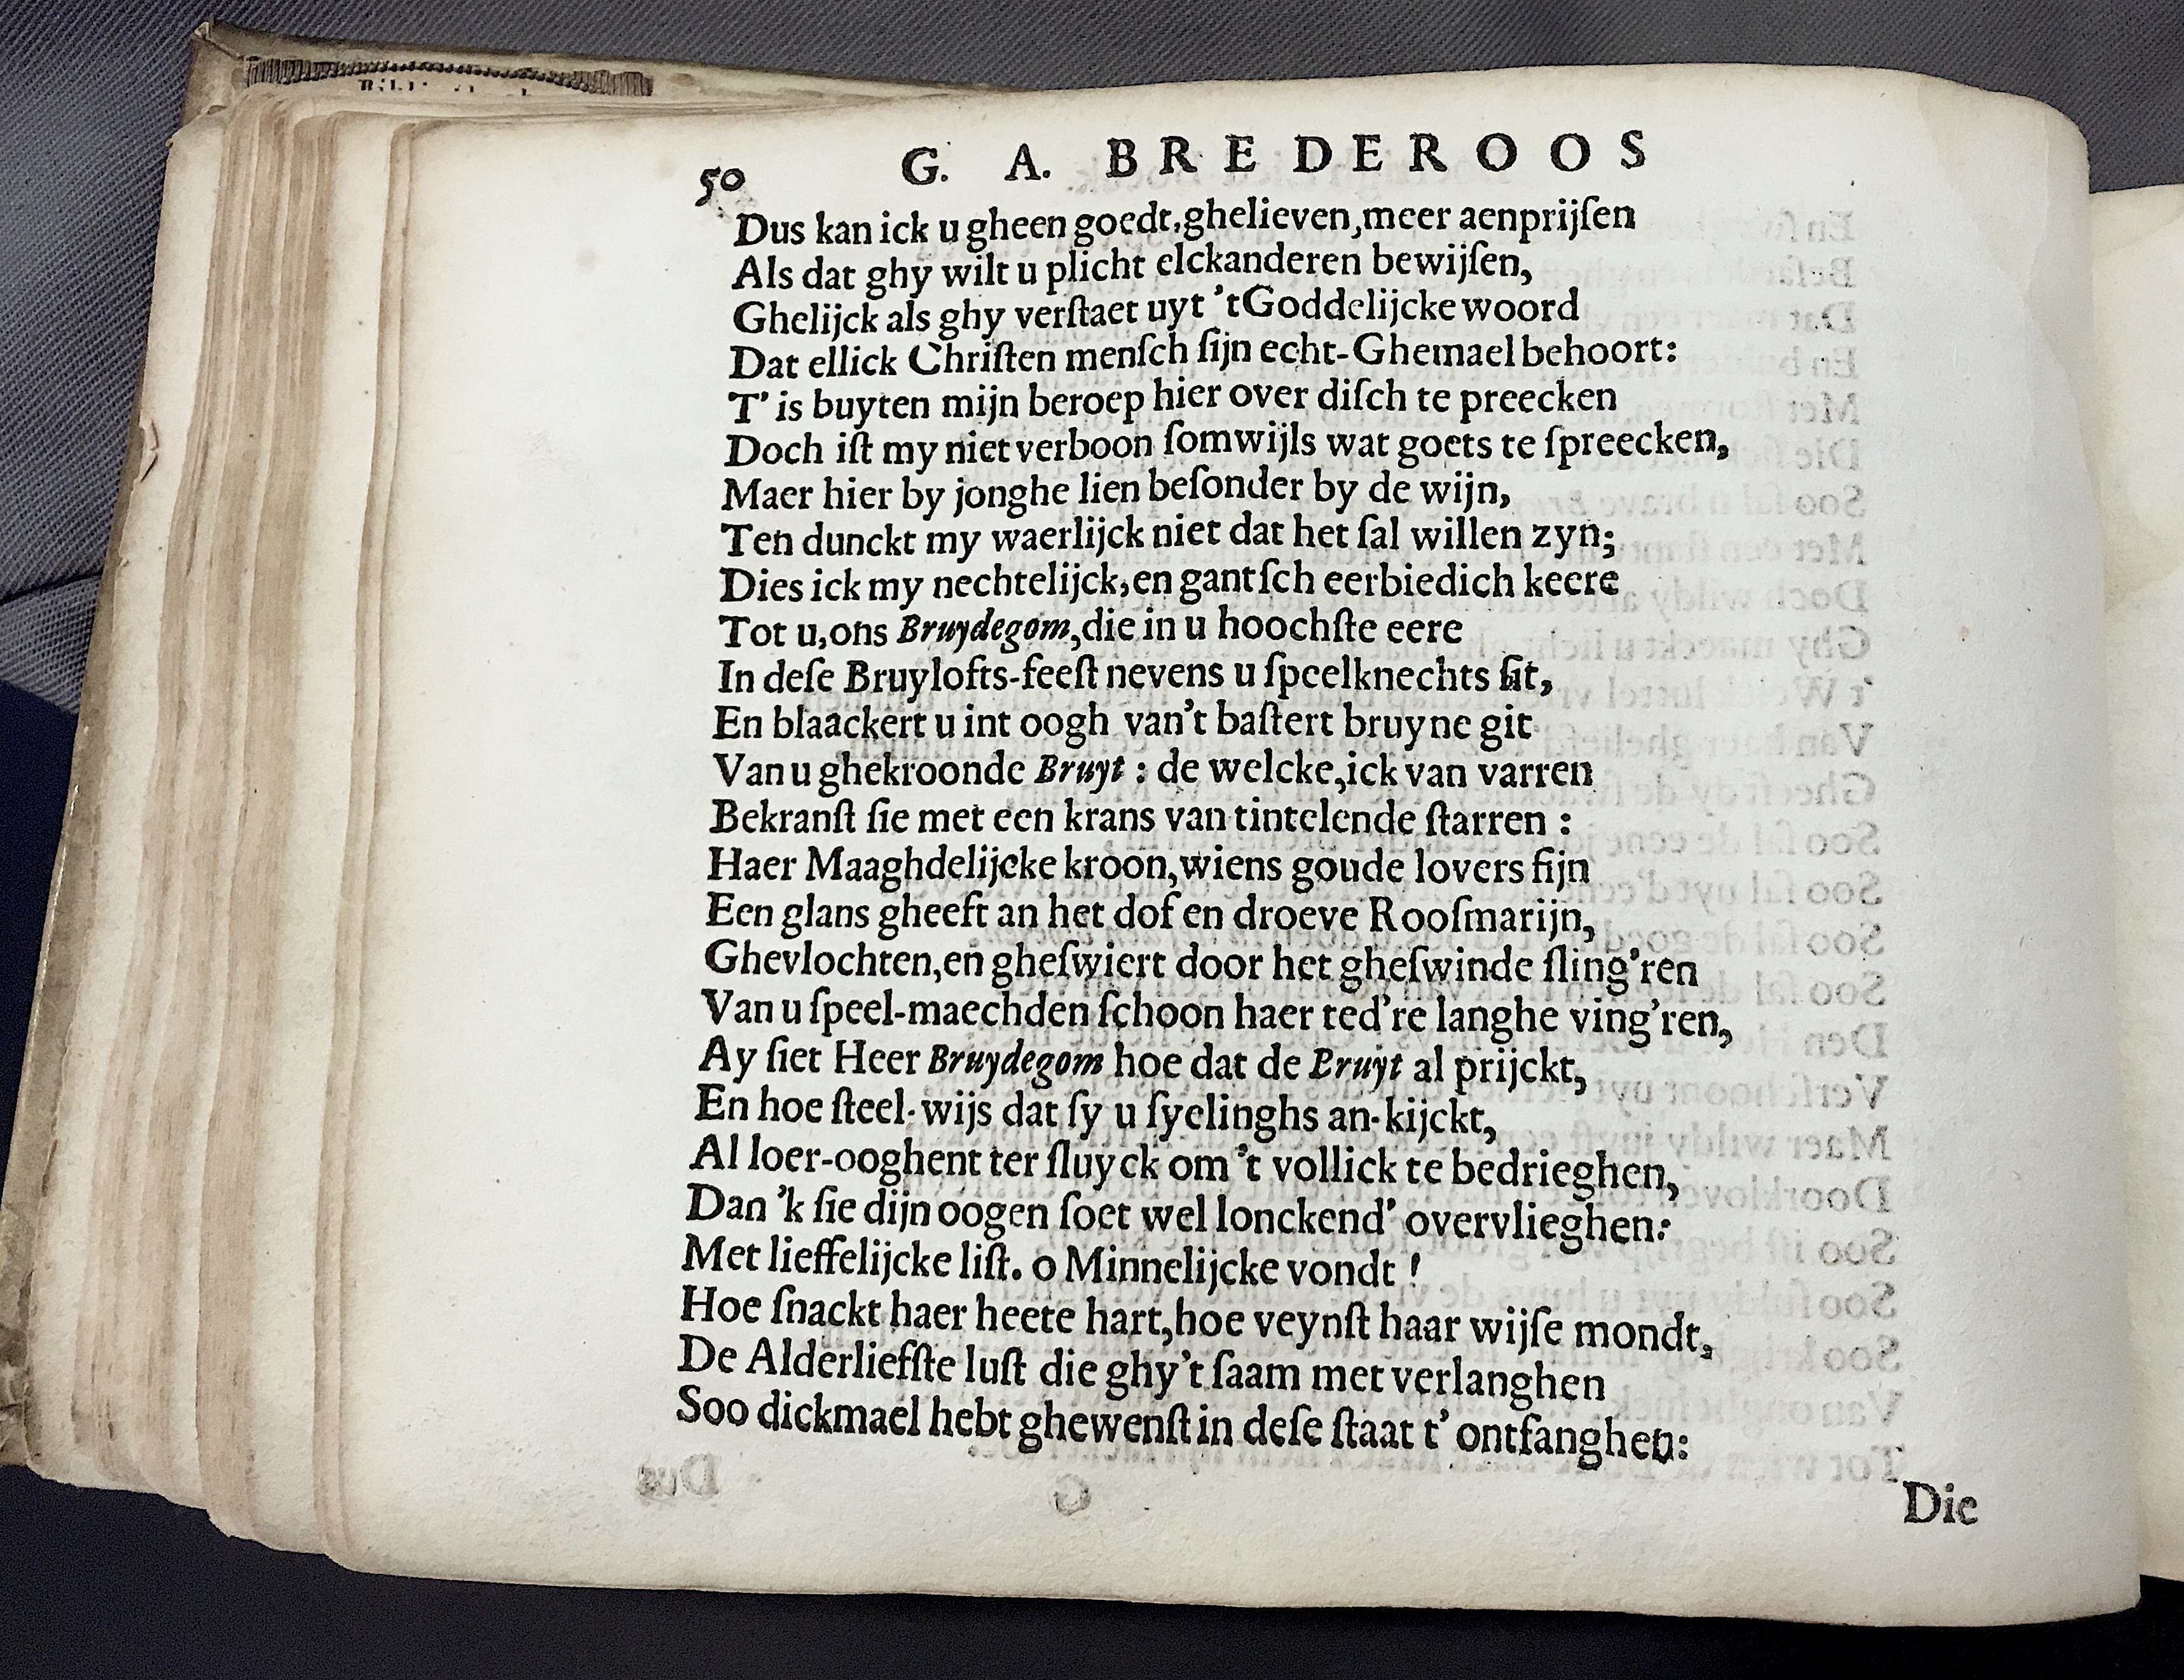 50 G. A. BREDEROOS
Dus kan ick u gheen goedt, ghelieven, meer aenprijſen
Als dat ghy wilt u plicht elckanderen bewijſen,
Ghelijck als ghy verſtaet uyt 't Goddelijcke woord
Dat ellick Chriſten menſch ſijn echt-Ghemael behoort:
T' is buyten mijn beroep hier over diſch te preecken
Doch iſt my niet verboon ſomwijls wat goets te ſpreecken,
Maer hier by jonghe lien beſonder by de wijn,
Ten dunckt my waerlijck niet dat het ſal willen zyn;
Dies ick my nechtelijck, en gantſch eerbiedich keere
Tot u, ons Bruydegom, die in u hoochſte eere
In deſe Bruylofts-feeſt nevens u ſpeelknechts ſit,
En blaackert u int oogh van't baſtert bruyne git
Van u ghekroonde Bruyt : de welcke, ick van varren
Bekranſt ſie met een krans van tintelende ſtarren :
Haer Maaghdelijcke kroon, wiens goude lovers fijn
Een glans gheeft an het dof en droeve Rooſmarijn,
Ghevlochten, en gheſwiert door het gheſwinde ſling'ren
Van u ſpeel-maechden ſchoon haer ted're langhe ving'ren,
Ay ſiet Heer Bruydegom hoe dat de Bruyt al prijckt,
En hoe ſteel-wijs dat ſy u ſyelinghs an-kijckt,
Al loer-ooghent ter ſluyck om 't vollick te bedrieghen,
Dan 'k ſie dijn oogen ſoet wel lonckend' overvlieghen:
Met lieffelijcke liſt. o Minnelijcke vondt !
Hoe ſnackt haer heete hart, hoe veynſt haar wijſe mondt,
De Alderliefſte luſt die ghy't ſaam met verlanghen
Soo dickmael hebt ghewenſt in deſe ſtaat t' ontfanghen:
Die